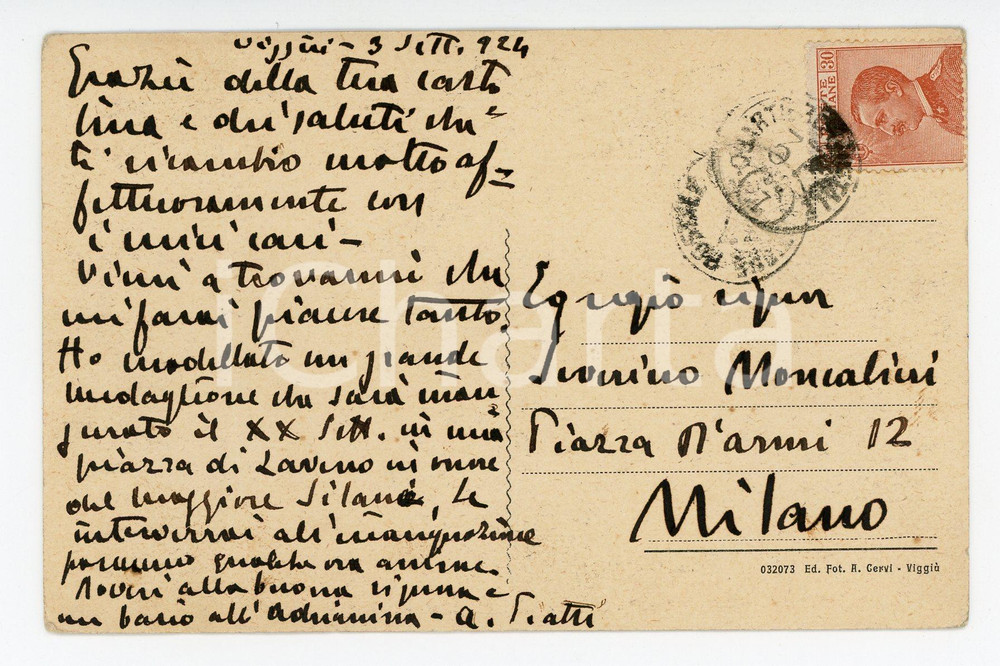 Viggiù - 3 Sett. 924
Grazie della tua carto
lina e dei saluti che
ti ricambio molto af=
fettuosamente con
i miei cari -
Vieni a trovarmi che
mi farai piacere tanto.
Ho modellato un grande
medaglione che sarà inau
gurato il XX Sett. in una
piazza di Laveno in onore
del Maggiore Silani, Se
interverrai all'inaugurazione
passeremo qualche ora assieme.
alla buona signora e
un bacio all'Adrianina - A. Piatti
30
Egregio signor
Severino Moncalini
Piazza D'armi 12
Milano
032073 Ed. Fot. A. Cervi - Viggià
iCharta